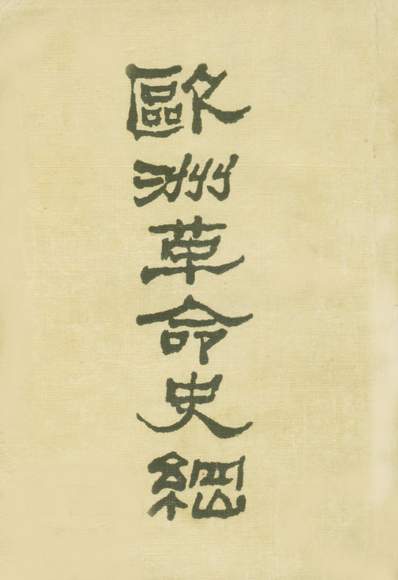 歐洲革命史綱